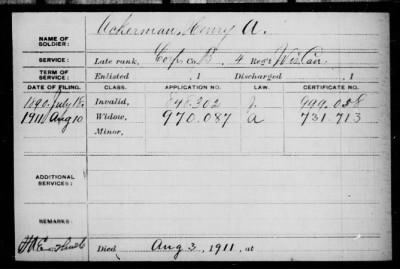 NAME OF SOLDIER: Ackerman, Henry A.
SERVICE: Late rank, Corp Co. B, 4 Reg't Wis Cav
TERM OF SERVICE: Enlisted , 1 Discharged , 1
DATE OF FILING. CLASS. APPLICATION NO. LAW. CERTIFICATE NO.
1890 July 18 Invalid, 848.302 J. 999.028
1911 Aug 10 Widow, 970.087 a 731.713
Minor,
ADDITIONAL SERVICES:
REMARKS:
Died Aug 3, 1911, at